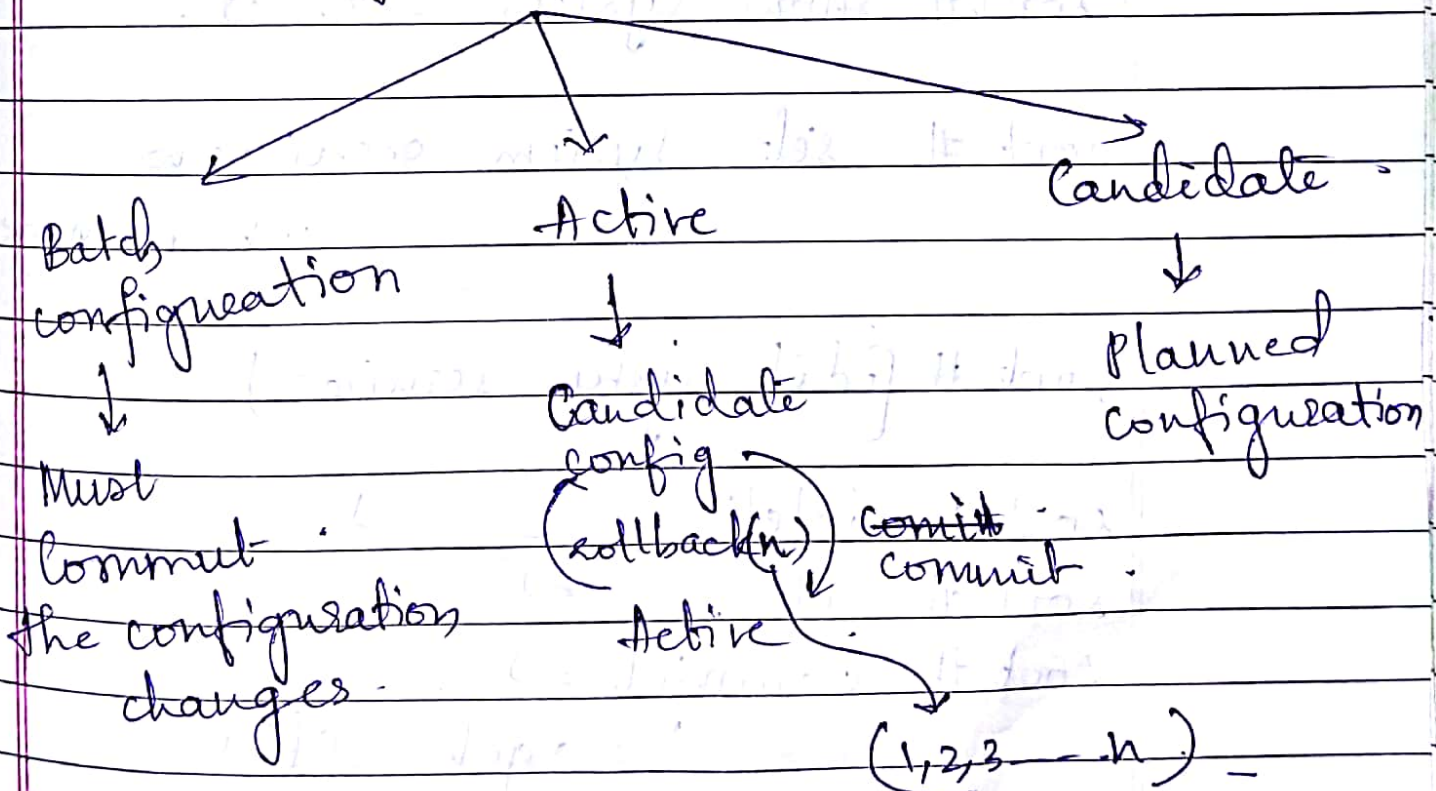 Batch
configuration
Must
Commit
the configuration
changes.
Active
Candidate
config
rollback(n)
comit
commit.
Active
(1,2,3---n)
Candidate
Planned
configuration